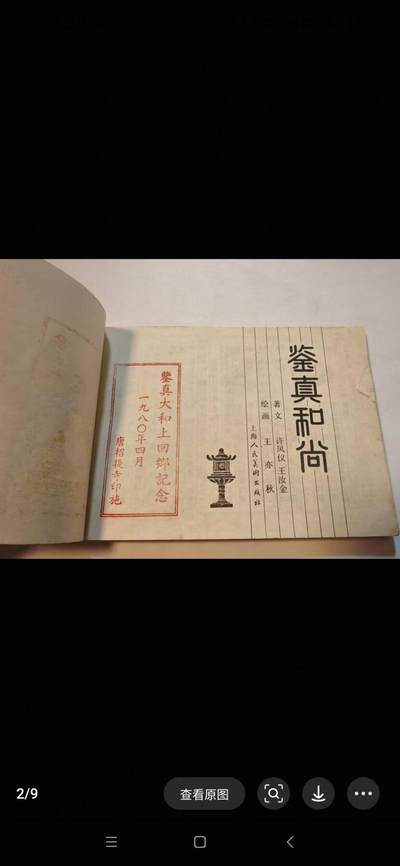 鉴真和尚
著文 许凤仪 王汝金
绘画 王亦秋
上海人民美術出版社
鑒真大和上回鄉記念
一九八〇年四月
唐招提寺印施
2/9
查看原图